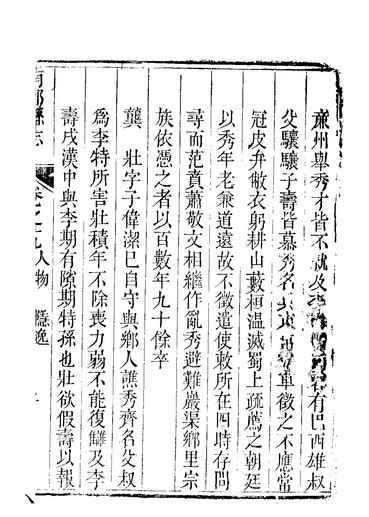 廉州舉秀才皆不就及李有巴西雄叔
父驤驤子壽皆慕秀名車徵之不應常
冠皮弁敝衣躬耕山藪桓溫滅蜀上疏薦之朝廷
以秀年老兼道遠故不徵遣使敕所在四時存問
尋而范賁蕭敬文相繼作亂秀避難巖渠鄉里宗
族依憑之者以百數年九十餘卒
龔 壯字子偉潔巳自守與鄉人譙秀齊名父叔
為李特所害壯積年不除喪力弱不能復讎及李
壽戍漢中與李期有隙期特孫也壯欲假壽以報
部縣志 卷之十九 人物 隱逸